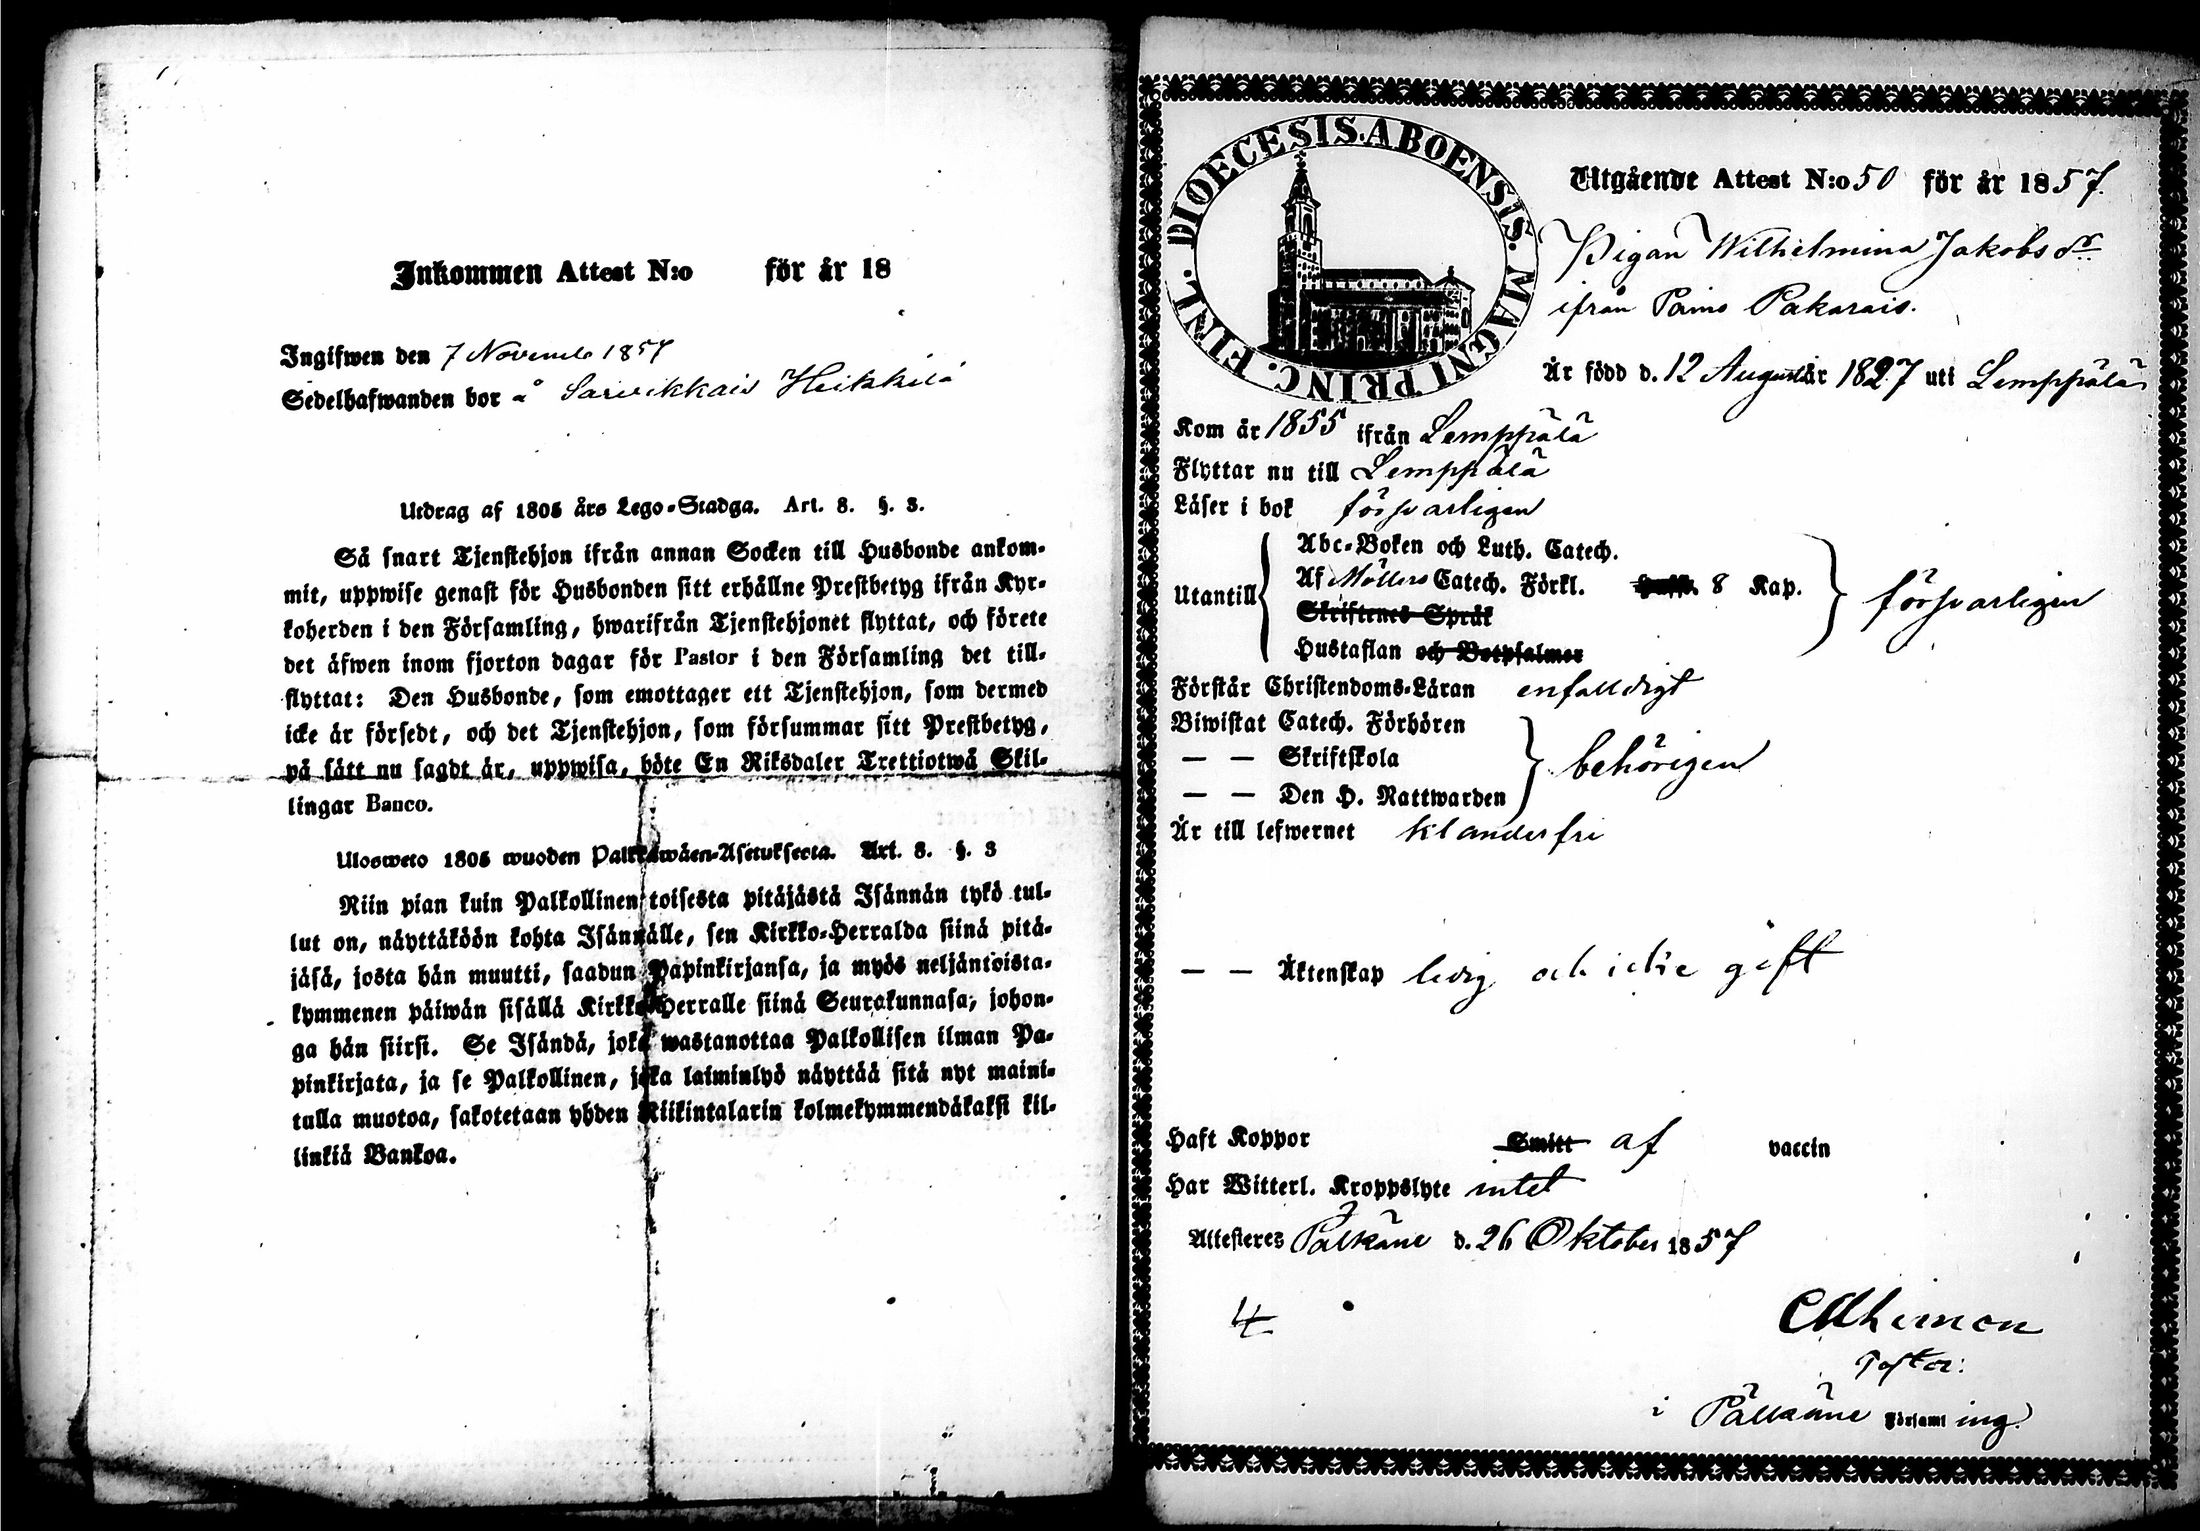 Inkommen Attest N:o för år 18
Ingifwen den 7 Novemb 1857
Sedelhafwanden bor å Sarvikkais Heikkilä
Utdrag af 1805 års Lego-Stadga. Art. 8. §. 3.
Så snart Tjenstehjon ifrån annan Socken till Husbonde ankom-
mit, uppwise genast för Husbonden sitt erhållne Prestbetyg ifrån Kyr-
koherden i den Församling, hwarifrån Tjenstehjonet flyttat, och förete
det äfwen inom fjorton dagar för Pastor i den Församling det till-
flyttat: Den Husbonde, som emottager ett Tjenstehjon, som dermed
icke är försedt, och det Tjenstehjon, som försummar sitt Prestbetyg,
på sätt nu sagdt är, uppwisa, böte En Riksdaler Trettiotwå Skil-
lingar Banco.
Ulosweto 1805 wuoden Palkkawäen-Asetuksesta. Art. 8. §. 3
Niin pian kuin Palkollinen toisesta pitäjästä Isännän tykö tul-
lut on, näyttäköön kohta Isännälle, sen Kirkko-Herralda siinä pitä-
jäsä, josta hän muutti, saadun Papinkirjansa, ja myös neljäntoista-
kymmenen päiwän sisällä Kirkko-Herralle siinä Seurakunnasa, johon-
ga hän siirsi. Se Isändä, joka wastanottaa Palkollisen ilman Pa-
pinkirjata, ja se Palkollinen, joka laiminlyö näyttää sitä nyt maini-
tulla muotoa, sakotetaan yhden Riikintalarin kolmekymmendäkaksi kil-
linkiä Bankoa.
DIOECESIS. ABOENSIS. MAGNI PRINC. FINL.
Utgående Attest N:o 50 för år 1857.
Pigan Wilhelmina Jakobsdr
ifrån Pakarais.
Är född d. 12 Augusti år 1827 uti Lemppälä
Kom år 1855 ifrån Lemppälä
Flyttar nu till Lemppälä
Läser i bok försvarligen
Abc-Boken och Luth. Catech.
Utantill Af Möllers Catech. Förkl. Huff. 8 Kap. försvarligen
Skriftenes Språk
Hustaflan och Botpsalmer
Förstår Christendoms-Läran enfalldigt
Biwistat Catech. Förhören
— — Skriftskola behörigen
— — Den H. Nattwarden
Är till lefwernet klanderfri
— — Äktenskap ledig och icke gift
Haft Koppor Smitt af vaccin
Har Witterl. Kroppslyte intet
Attesteres Pälkäne d. 26 Oktober 1857
4
Pastor:
i Pälkäne Församl ing.